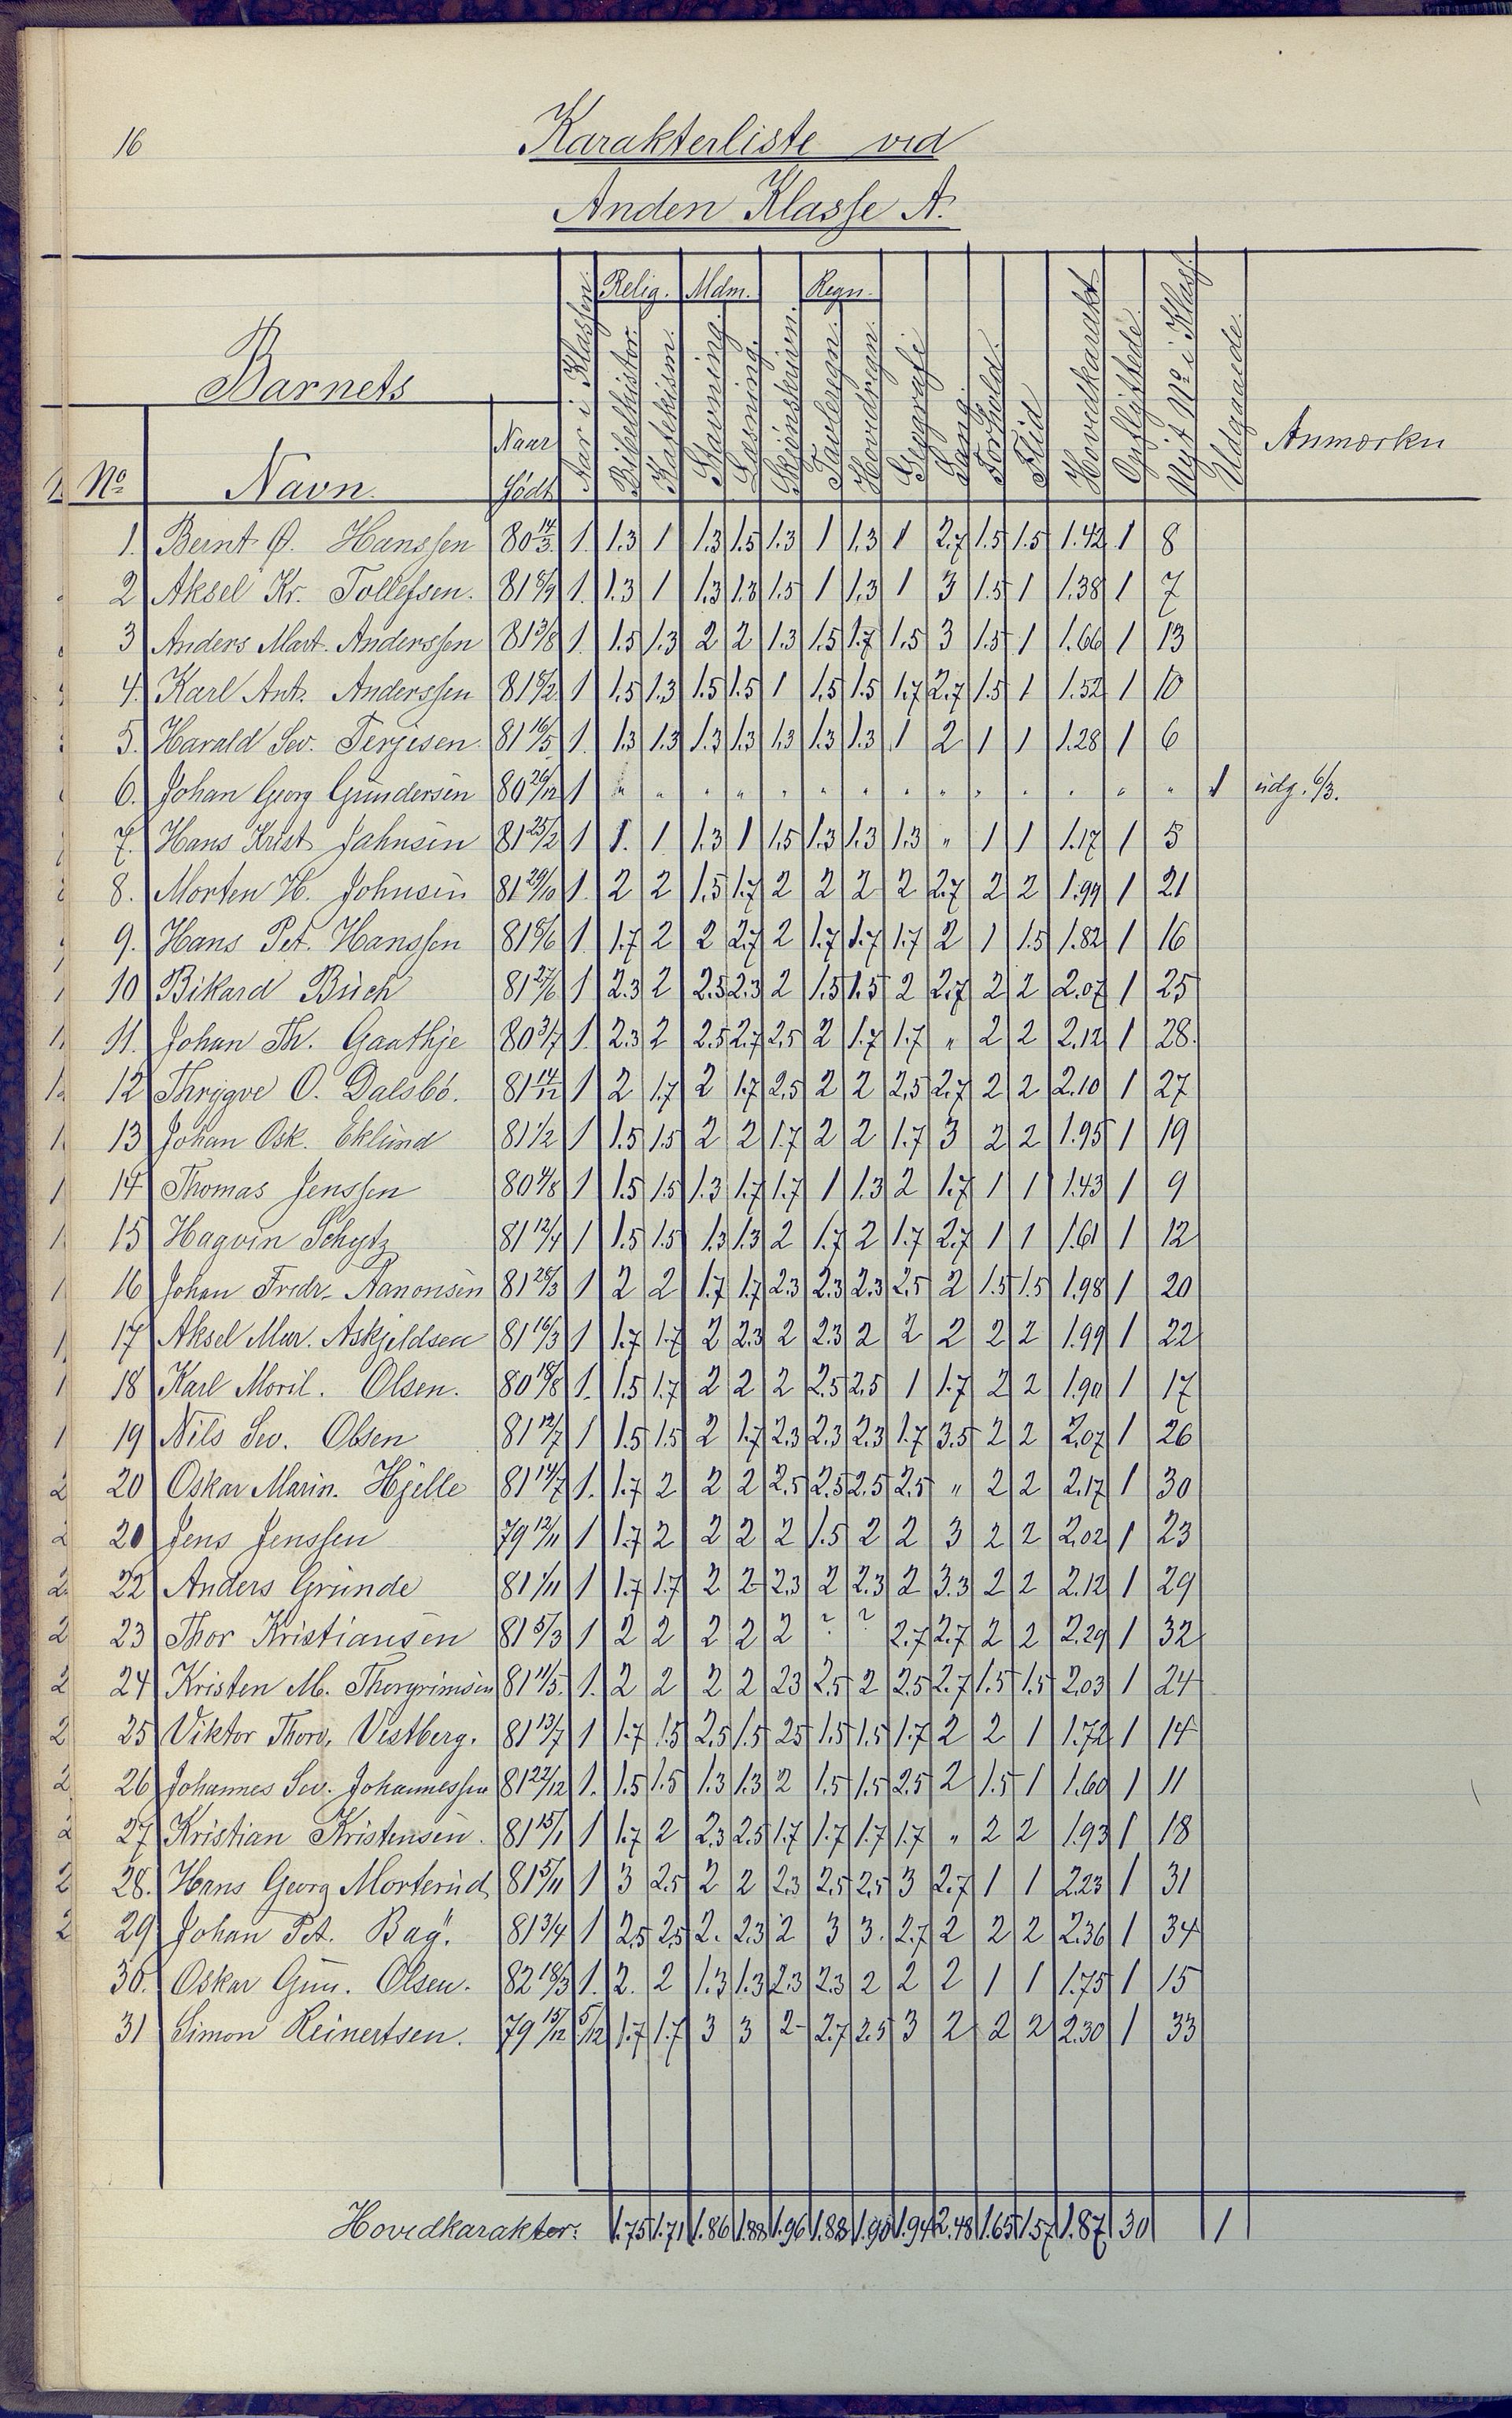 16
Karakterliste ved
Anden Klasse A.
Relig. Mdm. Regn.
Barnets
No Navn. Naar Født Aar i Klassen. Bibelhistor. Katekism. Stavning. Læsning. Skjönskriven. Tavleregn. Hovedregn. Geografi Sang. Forhold. Flid Hovedkarakt. Opflyttede. Nyt No i Klas. Udgaaede. Anmærkn
1. Bernt Ø. Hanssen 80 14/3 1. 1.3 1 1.3 1.5 1.3 1 1.3 1 2.7 1.5 1.5 1.42 1 8
2 Aksel Kr. Tollefsen. 81 8/9 1. 1.3 1 1.3 1.3 1.5 1 1.3 1 3 1.5 1 1.38 1 7
3 Anders Mart. Anderssen 81 3/8 1. 1.5 1.3 2 2 1.3 1.5 1.7 1.5 3 1.5 1 1.66 1 13
4. Karl Ant. Anderssen 81 8/2 1 1.5 1.3 1.5 1.5 1 1.5 1.5 1.7 2.7 1.5 1 1.52 1 10
5. Harald Sev. Terjesen 81 16/5 1. 1.3 1.3 1.3 1.3 1.3 1.3 1.3 1 2 1 1 1.28 1 6
6. Johan Georg Gundersen 80 26/12 1 " " " " " " " " " " " " " " 1 udg. 6/3.
7. Hans Krist. Jahnsen 81 25/2 1 1. 1 1.3 1 1.5 1.3 1.3 1.3 " 1 1 1.17 1 5
8. Morten H. Johnsen 81 29/10 1. 2 2 1.5 1.7 2 2 2 2 2.7 2 2 1.99 1 21
9. Hans Pet. Hanssen 81 8/6 1. 1.7 2 2 2.7 2 1.7 1.7 1.7 2 1 1.5 1.82 1 16
10 Bikard Buch 81 27/6 1 2.3 2 2.5 2.3 2 1.5 1.5 2 2.7 2 2 2.07 1 25
11. Johan Th. Gaathje 80 3/7 1. 2.3 2 2.5 2.7 2.5 2 1.7 1.7 " 2 2 2.12 1 28.
12 Thrygve O. Dalsbö. 81 14/12 1 2 1.7 2 1.7 2.5 2 2 2.5 2.7 2 2 2.10 1 27
13 Johan Osk. Eklund 81 1/2 1 1.5 1.5 2 2 1.7 2 2 1.7 3 2 2 1.95 1 19
14 Thomas Jenssen 80 4/8 1 1.5 1.5 1.3 1.7 1.7 1 1.3 2 1.7 1 1 1.43 1 9
15 Hagvin Schytz 81 12/4 1 1.5 1.5 1.3 1.3 2 1.7 2 1.7 2.7 1 1 1.61 1 12
16 Johan Fredr. Aanonsen 81 28/3 1 2 2 1.7 1.7 2.3 2.3 2.3 2.5 2 1.5 1.5 1.98 1 20
17 Aksel Mar. Askjeldsen 81 16/3 1 1.7 1.7 2 2.3 2 2.3 2 2 2 2 2 1.99 1 22
18 Karl Moril. Olsen. 80 18/8 1. 1.5 1.7 2 2 2 2.5 2.5 1 1.7 2 2 1.90 1 17
19 Nils Sev. Olsen 81 12/7 1 1.5 1.5 2 1.7 2.3 2.3 2.3 1.7 3.5 2 2 2.07 1 26
20 Oskar Marin. Hjelle 81 14/7 1. 1.7 2 2 2 2.5 2.5 2.5 2.5 " 2 2 2.17 1 30
20 Jens Jenssen 79 12/11 1 1.7 2 2 2 2 1.5 2 2 3 2 2 2.02 1 23
22 Anders Grunde 81 1/11 1 1.7 1.7 2 2 2.3 2 2.3 2 3.3 2 2 2.12 1 29
23 Thor Kristiansen 81 5/3 1 2 2 2 2 2 ? ? 2.7 2.7 2 2 2.29 1 32
24 Kristen M. Thorgrimsen 81 11/5. 1. 2 2 2 2 2.3 2.5 2 2.5 2.7 1.5 1.5 2.03 1 24
25 Viktor Thorv. Vestberg. 81 13/7 1 1.7 1.5 2.5 1.5 2.5 1.5 1.5 1.7 2 2 1 1.72 1 14
26 Johannes Sev. Johannessen 81 22/12 1. 1.5 1.5 1.3 1.3 2 1.5 1.5 2.5 2 1.5 1 1.60 1 11
27 Kristian Kristensen. 81 15/1 1 1.7 2 2.3 2.5 1.7 1.7 1.7 1.7 " 2 2 1.93 1 18
28. Hans Georg Morterud 81 5/11 1 3 2.5 2 2 2.3 2.5 2.5 3 2.7 1 1 2.23 1 31
29 Johan Pet. Bag. 81 3/4 1 2.5 2.5 2. 2.3 2 3 3. 2.7 2 2 2 2.36 1 34
30. Oskar Gun. Olsen. 82 18/3 1. 2. 2 1.3 1.3 2.3 2.3 2 2 2 1 1 1.75 1 15
31 Simon Reinertsen. 79 15/12 5/12 1.7 1.7 3 3 2 2.7 2.5 3 2 2 2 2.30 1 33
Hovedkarakter: 1.75 1.71 1.86 1.88 1.96 1.88 1.90 1.94 2.48 1.65 1.57 1.87 30 1